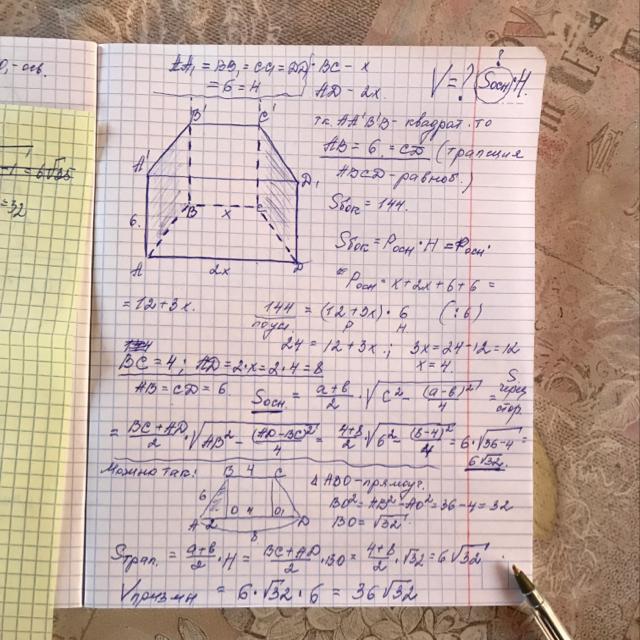 D₁ - осв.
= 6√35
= 32
AA₁ = BB₁ = CC₁ = DD₁
= 6 = H
BC - x
AD - 2x.
?
V = ? Sосн · H.
B' C'
A' D₁
6.
B x C
A 2x D
т.к. AA'B'B - квадрат. то
AB = 6 = CD (трапеция
ABCD - равноб.)
Sбок = 144.
Sбок = Pосн · H = Pосн
= Pосн = x + 2x + 6 + 6 =
= 12 + 3x.
144 = (12 + 3x) · 6 (:6)
P H
24 = 12 + 3x ; 3x = 24 - 12 = 12
x = 4.
BC = 4 ; AD = 2·x = 2·4 = 8
AB = CD = 6.
Sосн = (a+b)/2 · √(c² - (a-b)²/4) =
S через стор.
= (BC + AD)/2 · √(AB² - (AD - BC)²/4) = (4+8)/2 · √(6² - (8-4)²/4) = 6·√(36-4) =
6√32.
Можно так:
B 4 C
6
A 2 O 4 O₁ D
8
Δ ABO - прямоуг.
BO² = AB² - AO² = 36 - 4 = 32
BO = √32
Sтрап. = (a+b)/2 · H = (BC + AD)/2 · BO = (4+8)/2 · √32 = 6√32
Vпризмы = 6 · √32 · 6 = 36√32